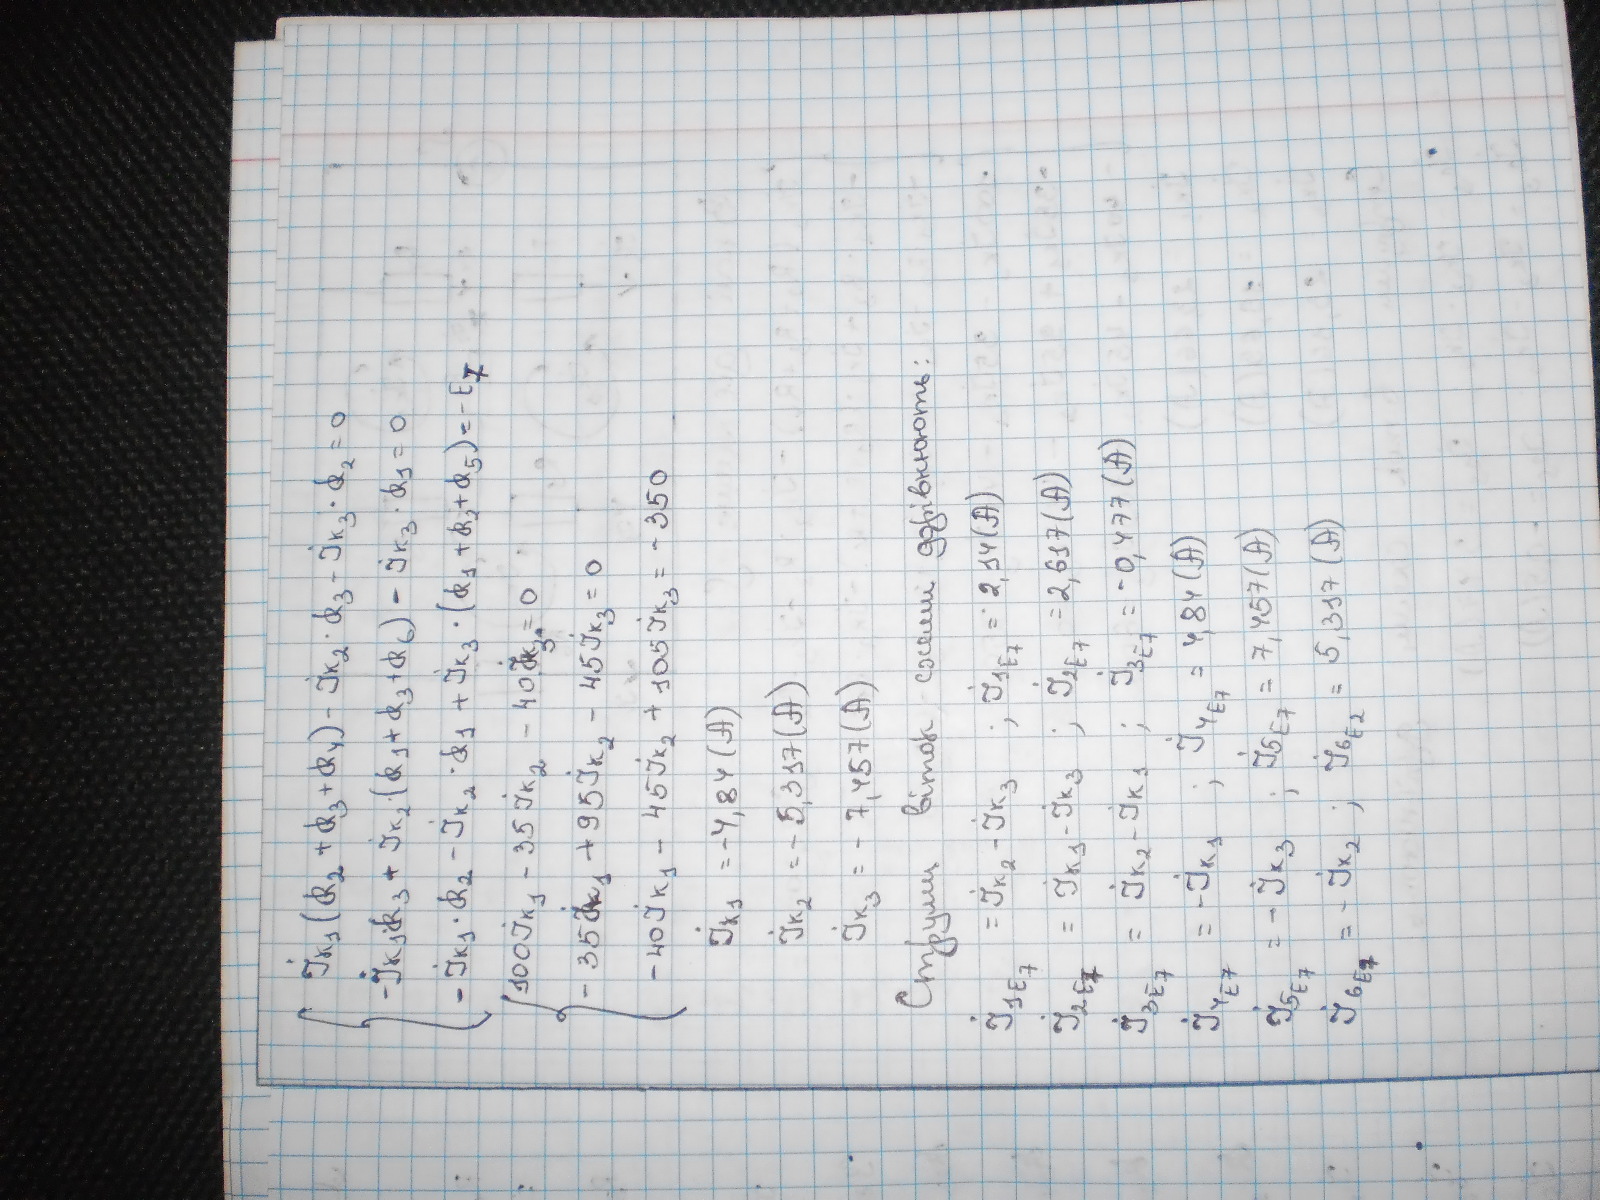 İк₁(R₂ + R₃ + R₄) - İк₂·R₃ - İк₃·R₂ = 0
-İк₁·R₃ + İк₂·(R₁ + R₃ + R₆) - İк₃·R₁ = 0
-İк₁·R₂ - İк₂·R₁ + İк₃·(R₁ + R₂ + R₅) = -E₇
100İк₁ - 35İк₂ - 40İк₃ = 0
-35İк₁ + 95İк₂ - 45İк₃ = 0
-40İк₁ - 45İк₂ + 105İк₃ = -350
İк₁ = -4,84 (А)
İк₂ = -5,317 (А)
İк₃ = -7,457 (А)
Струми віток схеми дорівнюють:
İ₁E₇ = İк₂ - İк₃ ; İ₁E₇ = 2,14 (А)
İ₂E₇ = İк₁ - İк₃ ; İ₂E₇ = 2,617 (А)
İ₃E₇ = İк₂ - İк₁ ; İ₃E₇ = -0,477 (А)
İ₄E₇ = -İк₁ ; İ₄E₇ = 4,84 (А)
İ₅E₇ = -İк₃ ; İ₅E₇ = 7,457 (А)
İ₆E₇ = -İк₂ ; İ₆E₂ = 5,317 (А)